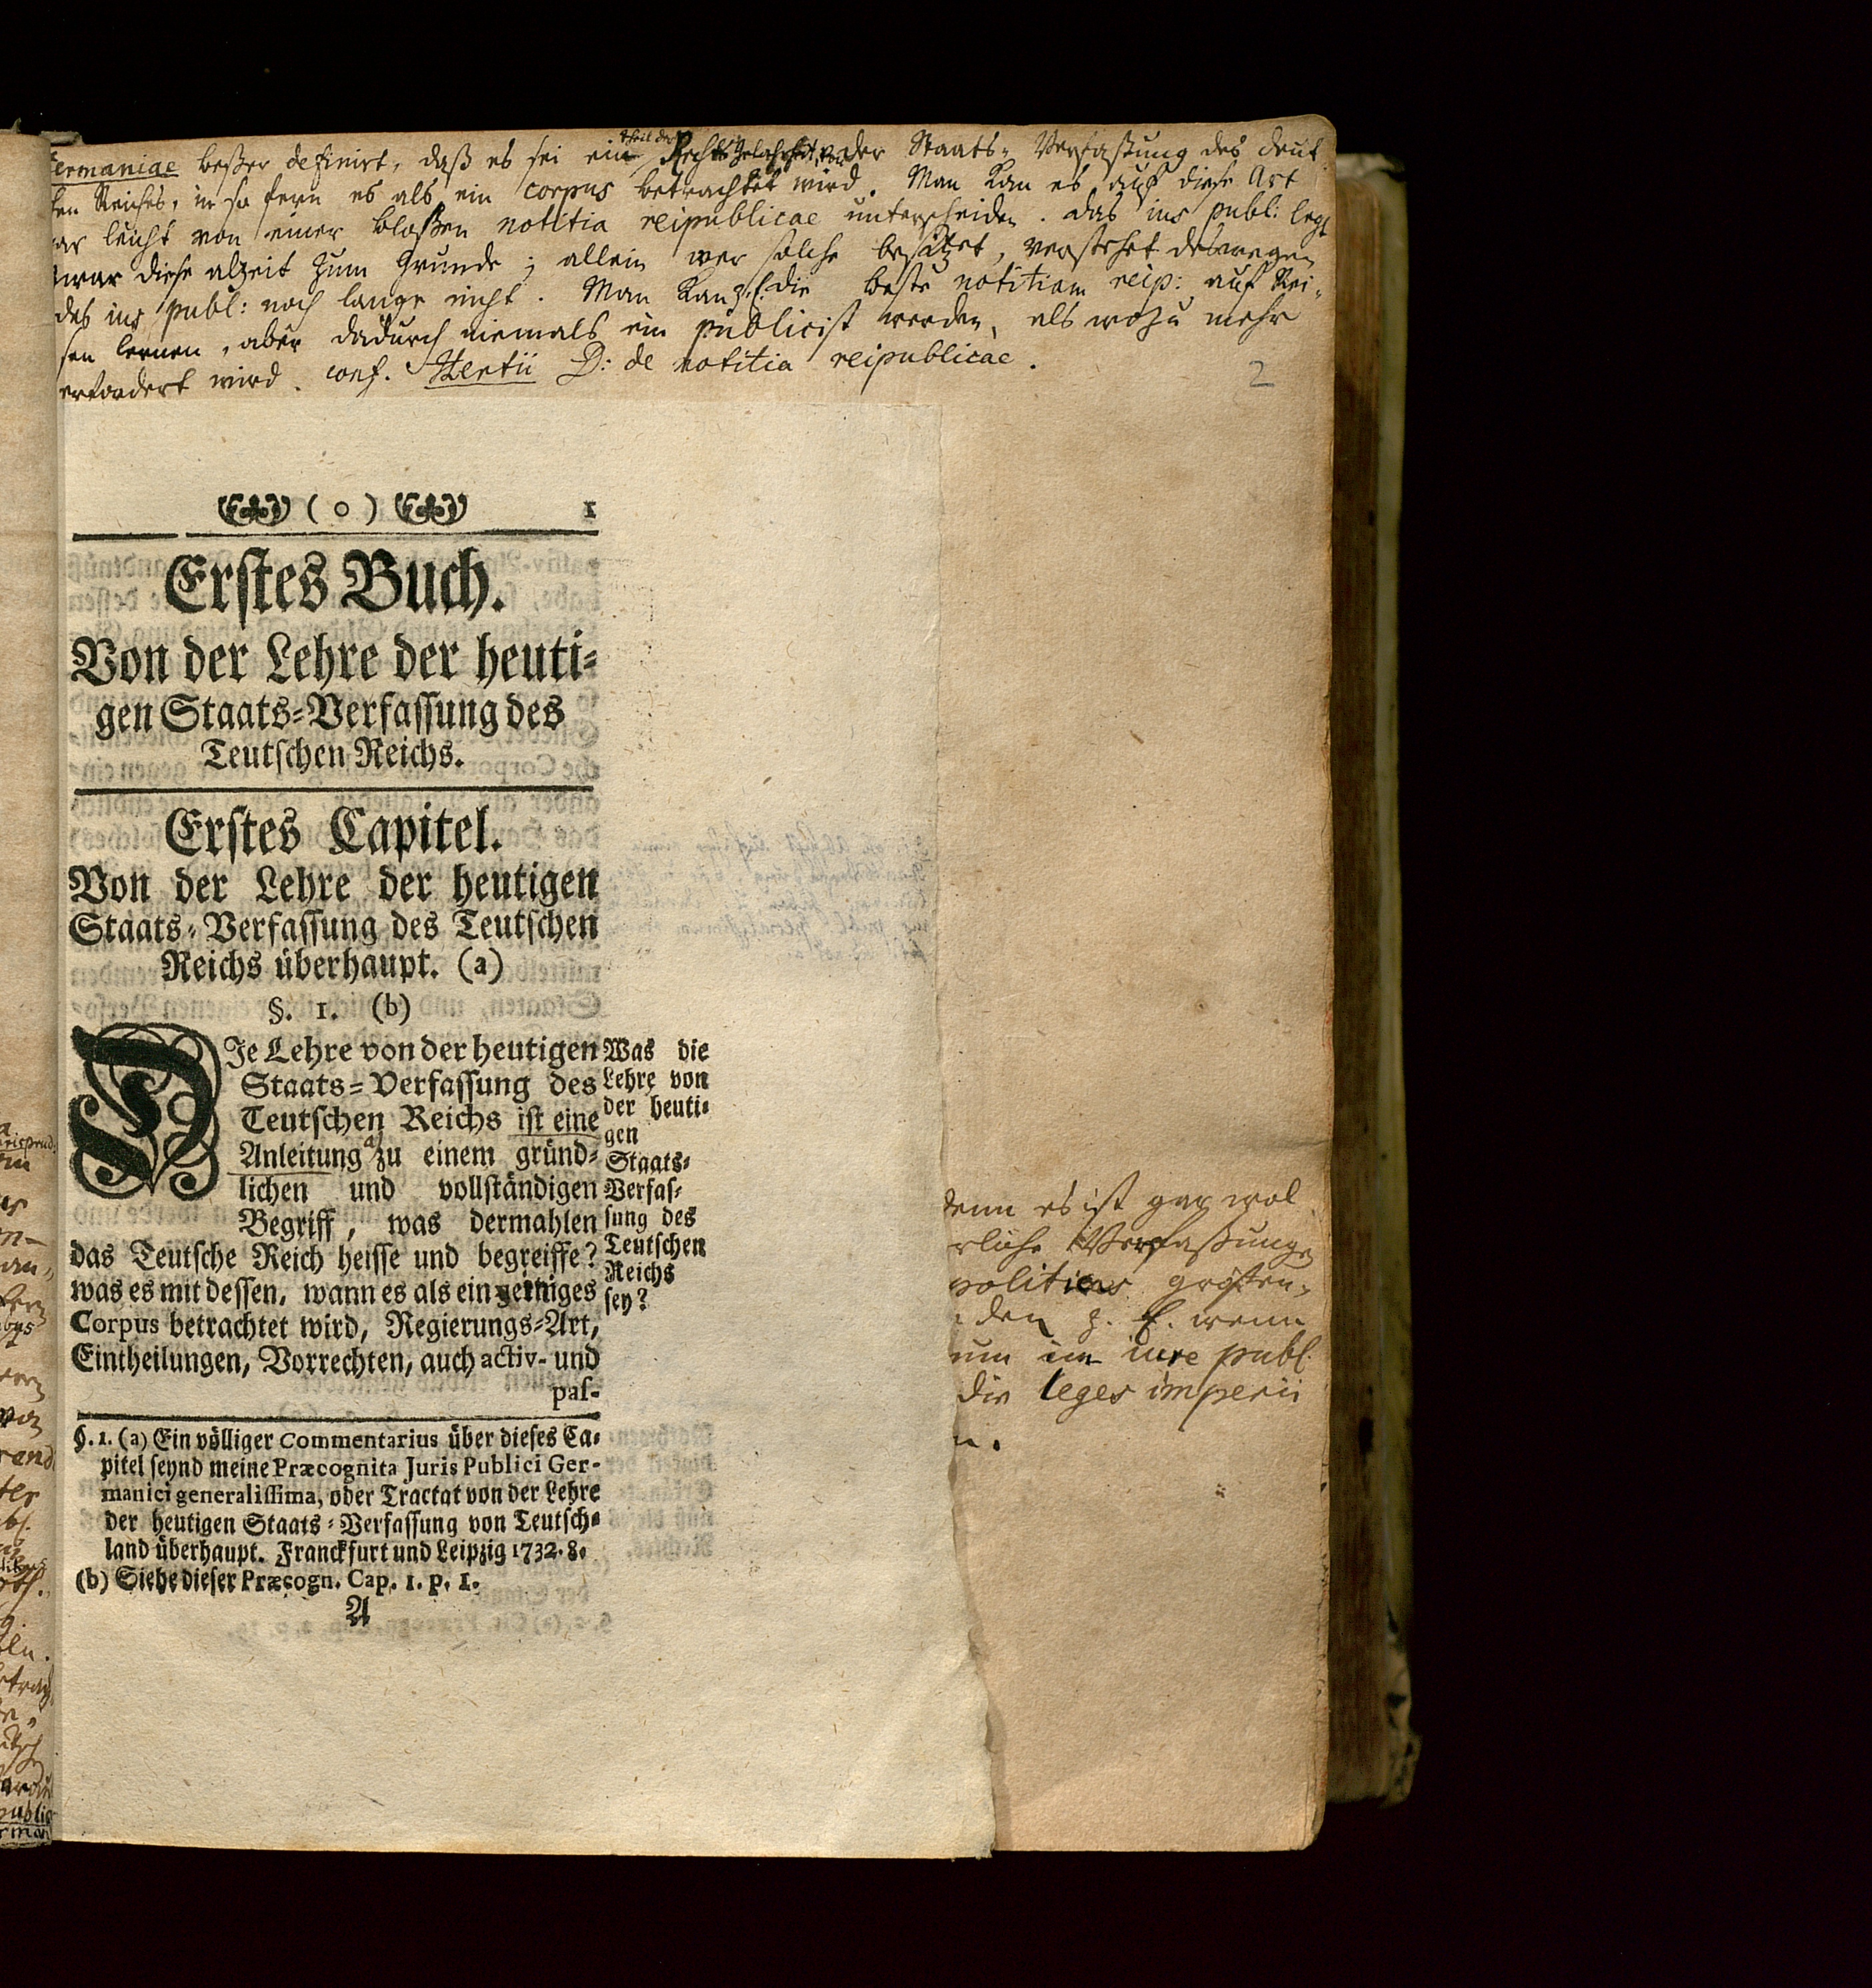 ermaniae beßer definirt, daß es sei ein theil der Rechts Gelahrheit von der Staats-Verfaßung des deut
ken Reiches, in so fern es als ein corpus betrachtet wird. Man kan es auf diese Art
gar leicht von einer bloßen notitia reipublicae unterscheiden. das ius publ: legt
zwar diese alzeit zum Grunde; allein wer solche besitzet, verstehet deswegen
das ius publ: noch lange nicht. Man kan z. E. die beste notitiam reip: auf Rei-
sen lernen, aber dadurch niemals ein publicist werden, als wozu mehr
erfordert wird. conf. Hertii D: de notitia reipublicae.
2
( o ) 1
Erstes Buch.
Von der Lehre der heuti-
gen Staats-Verfassung des
Teutschen Reichs.
Erstes Capitel.
Von der Lehre der heutigen
Staats-Verfassung des Teutschen
Reichs überhaupt. (a)
§. 1. (b)
DIe Lehre von der heutigen
Staats-Verfassung des
Teutschen Reichs ist eine
Anleitung a) zu einem gründ-
lichen und vollständigen
Begriff, was dermahlen
das Teutsche Reich heisse und begreiffe?
was es mit dessen, wann es als ein einiges
Corpus betrachtet wird, Regierungs-Art,
Eintheilungen, Vorrechten, auch activ- und
pas-
Was die
Lehre von
der heuti-
gen
Staats-
Verfas-
sung des
Teutschen
Reichs
sey?
§. 1. (a) Ein völliger Commentarius über dieses Ca-
pitel seynd meine Præcognita Juris Publici Ger-
manici generalissima, oder Tractat von der Lehre
der heutigen Staats-Verfassung von Teutsch-
land überhaupt. Franckfurt und Leipzig 1732. 8.
(b) Siehe dieser Præcogn. Cap. 1. p. 1.
A
denn es ist gar wol
rliche Verfaßung
politicus grösten-
den z. E. wenn
um im iure publ.
die leges imperii
n.